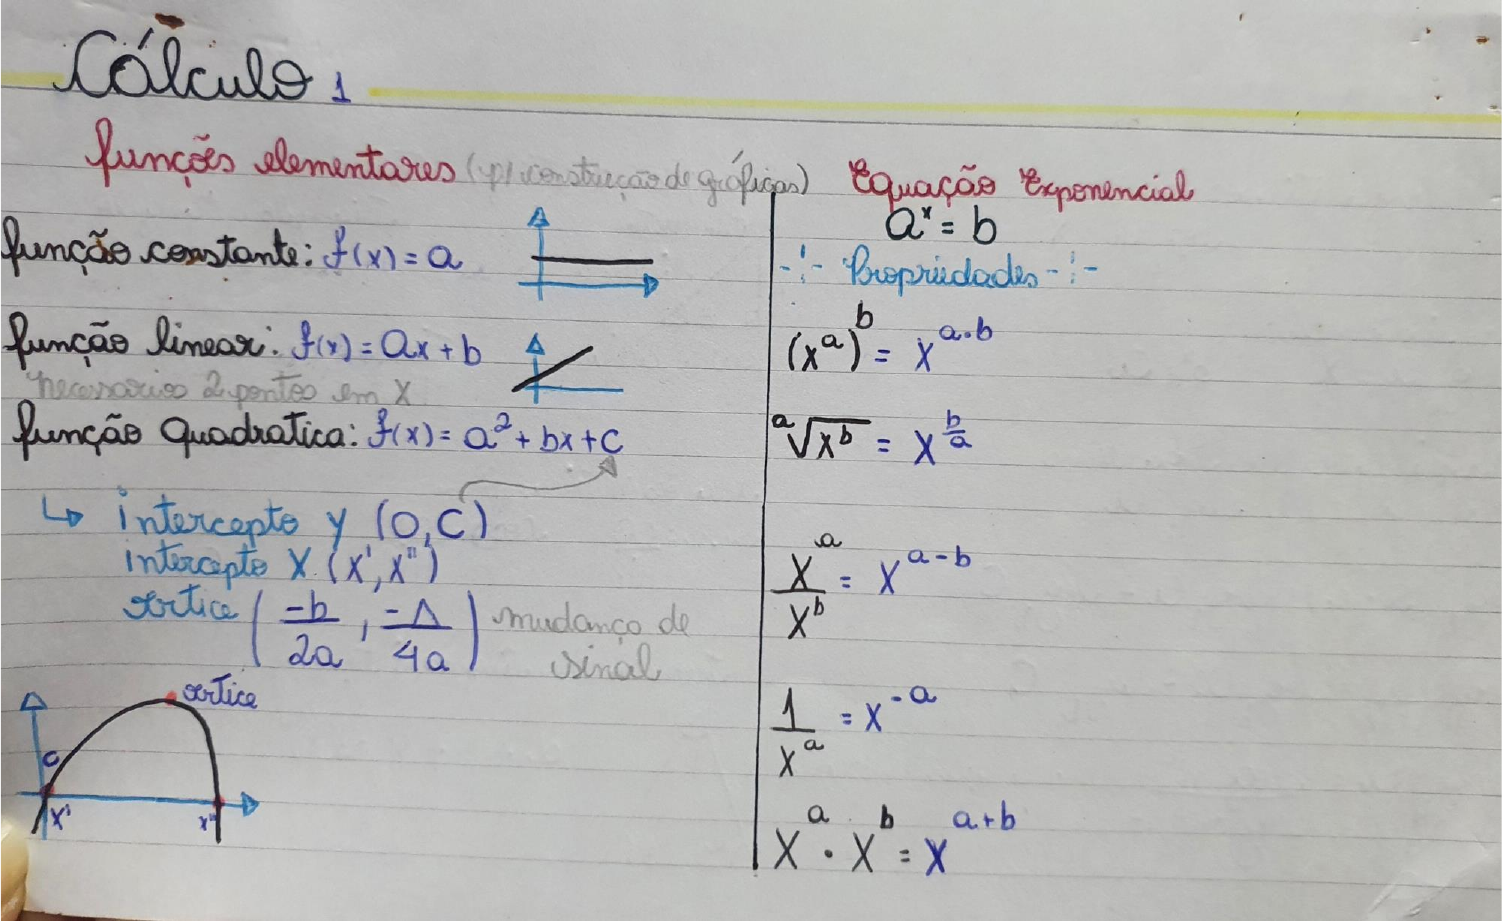 Cálculo 1
funções elementares (p/ construção de gráficos)
função constante: f(x) = a
função linear: f(x) = ax + b
necessarios 2 pontos em X
função Quadratica: f(x) = a² + bx + c
↳ intercepto y (0, C)
intercepto X (x', x'')
vértice (-b/2a, -Δ/4a) mudança de
sinal
vértice
C
x' x''
Equação Exponencial
aˣ = b
-¦- Propriedades -¦-
(x^a)^b = x^(a·b)
ᵃ√(x^b) = x^(b/a)
x^a/x^b = x^(a-b)
1/x^a = x^(-a)
x^a · x^b = x^(a+b)